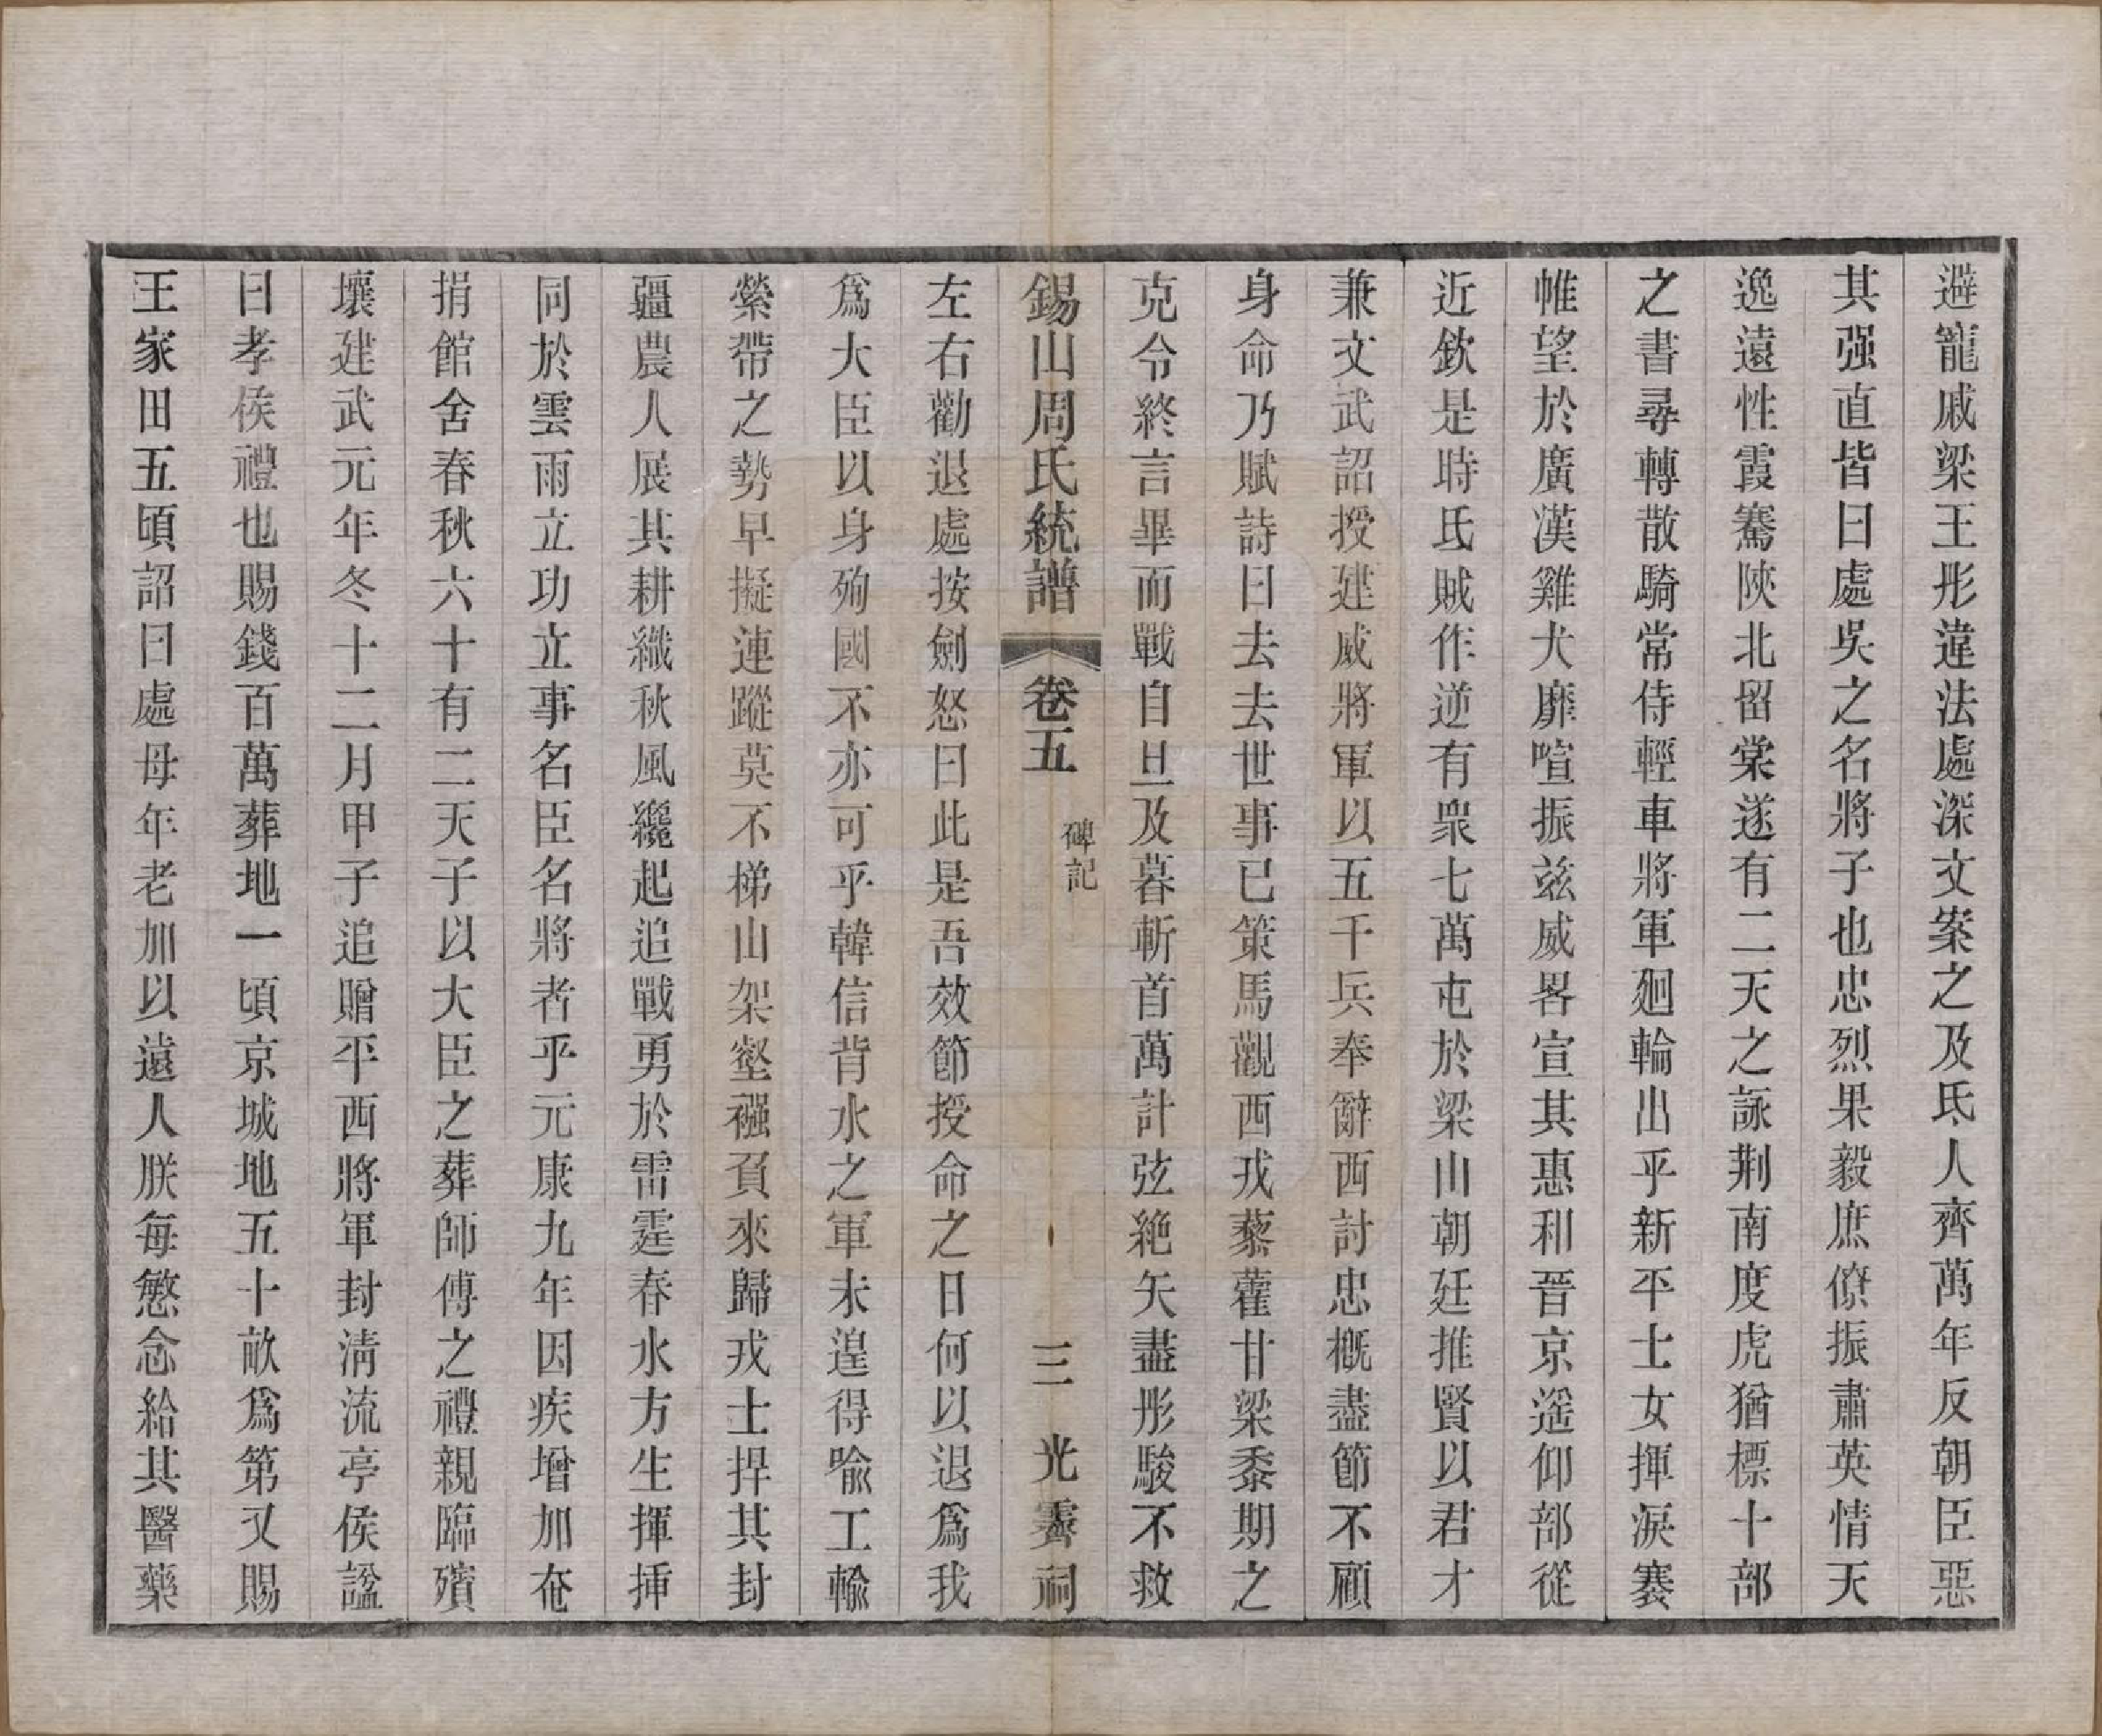 避寵戚梁王彤違法處深文案之及氐人齊萬年反朝臣惡
其强直皆曰處吳之名將子也忠烈果毅庶僚振肅英情天
逸遠性霞騫陝北留棠遂有二天之詠荆南度虎猶標十部
之書尋轉散騎常侍輕車將軍廻輪出乎新平士女揮淚褰
帷望於廣漢雞犬靡喧振兹威畧宣其惠和晉京遥仰部從
近欽是時氐賊作逆有衆七萬屯於梁山朝廷推賢以君才
兼文武詔授建威將軍以五千兵奉辭西討忠概盡節不顧
身命乃賦詩曰去去世事已策馬觀西戎藜藿甘梁黍期之
克令終言畢而戰自旦及暮斬首萬計弦絶矢盡彤駿不救
錫山周氏統譜 卷五 碑記 三 光霽祠
左右勸退處按劍怒曰此是吾效節授命之日何以退爲我
爲大臣以身殉國不亦可乎韓信背水之軍未遑得喩工輸
縈帶之勢早擬連蹤莫不梯山架壑襁負來歸戎士捍其封
疆農人展其耕織秋風纔起追戰勇於雷霆春水方生揮挿
同於雲雨立功立事名臣名將者乎元康九年因疾增加奄
捐館舍春秋六十有二天子以大臣之葬師傅之禮親臨殯
壤建武元年冬十二月甲子追贈平西將軍封淸流亭侯諡
曰孝侯禮也賜錢百萬葬地一頃京城地五十畝爲第又賜
王家田五頃詔曰處母年老加以遠人朕每愍念給其醫藥